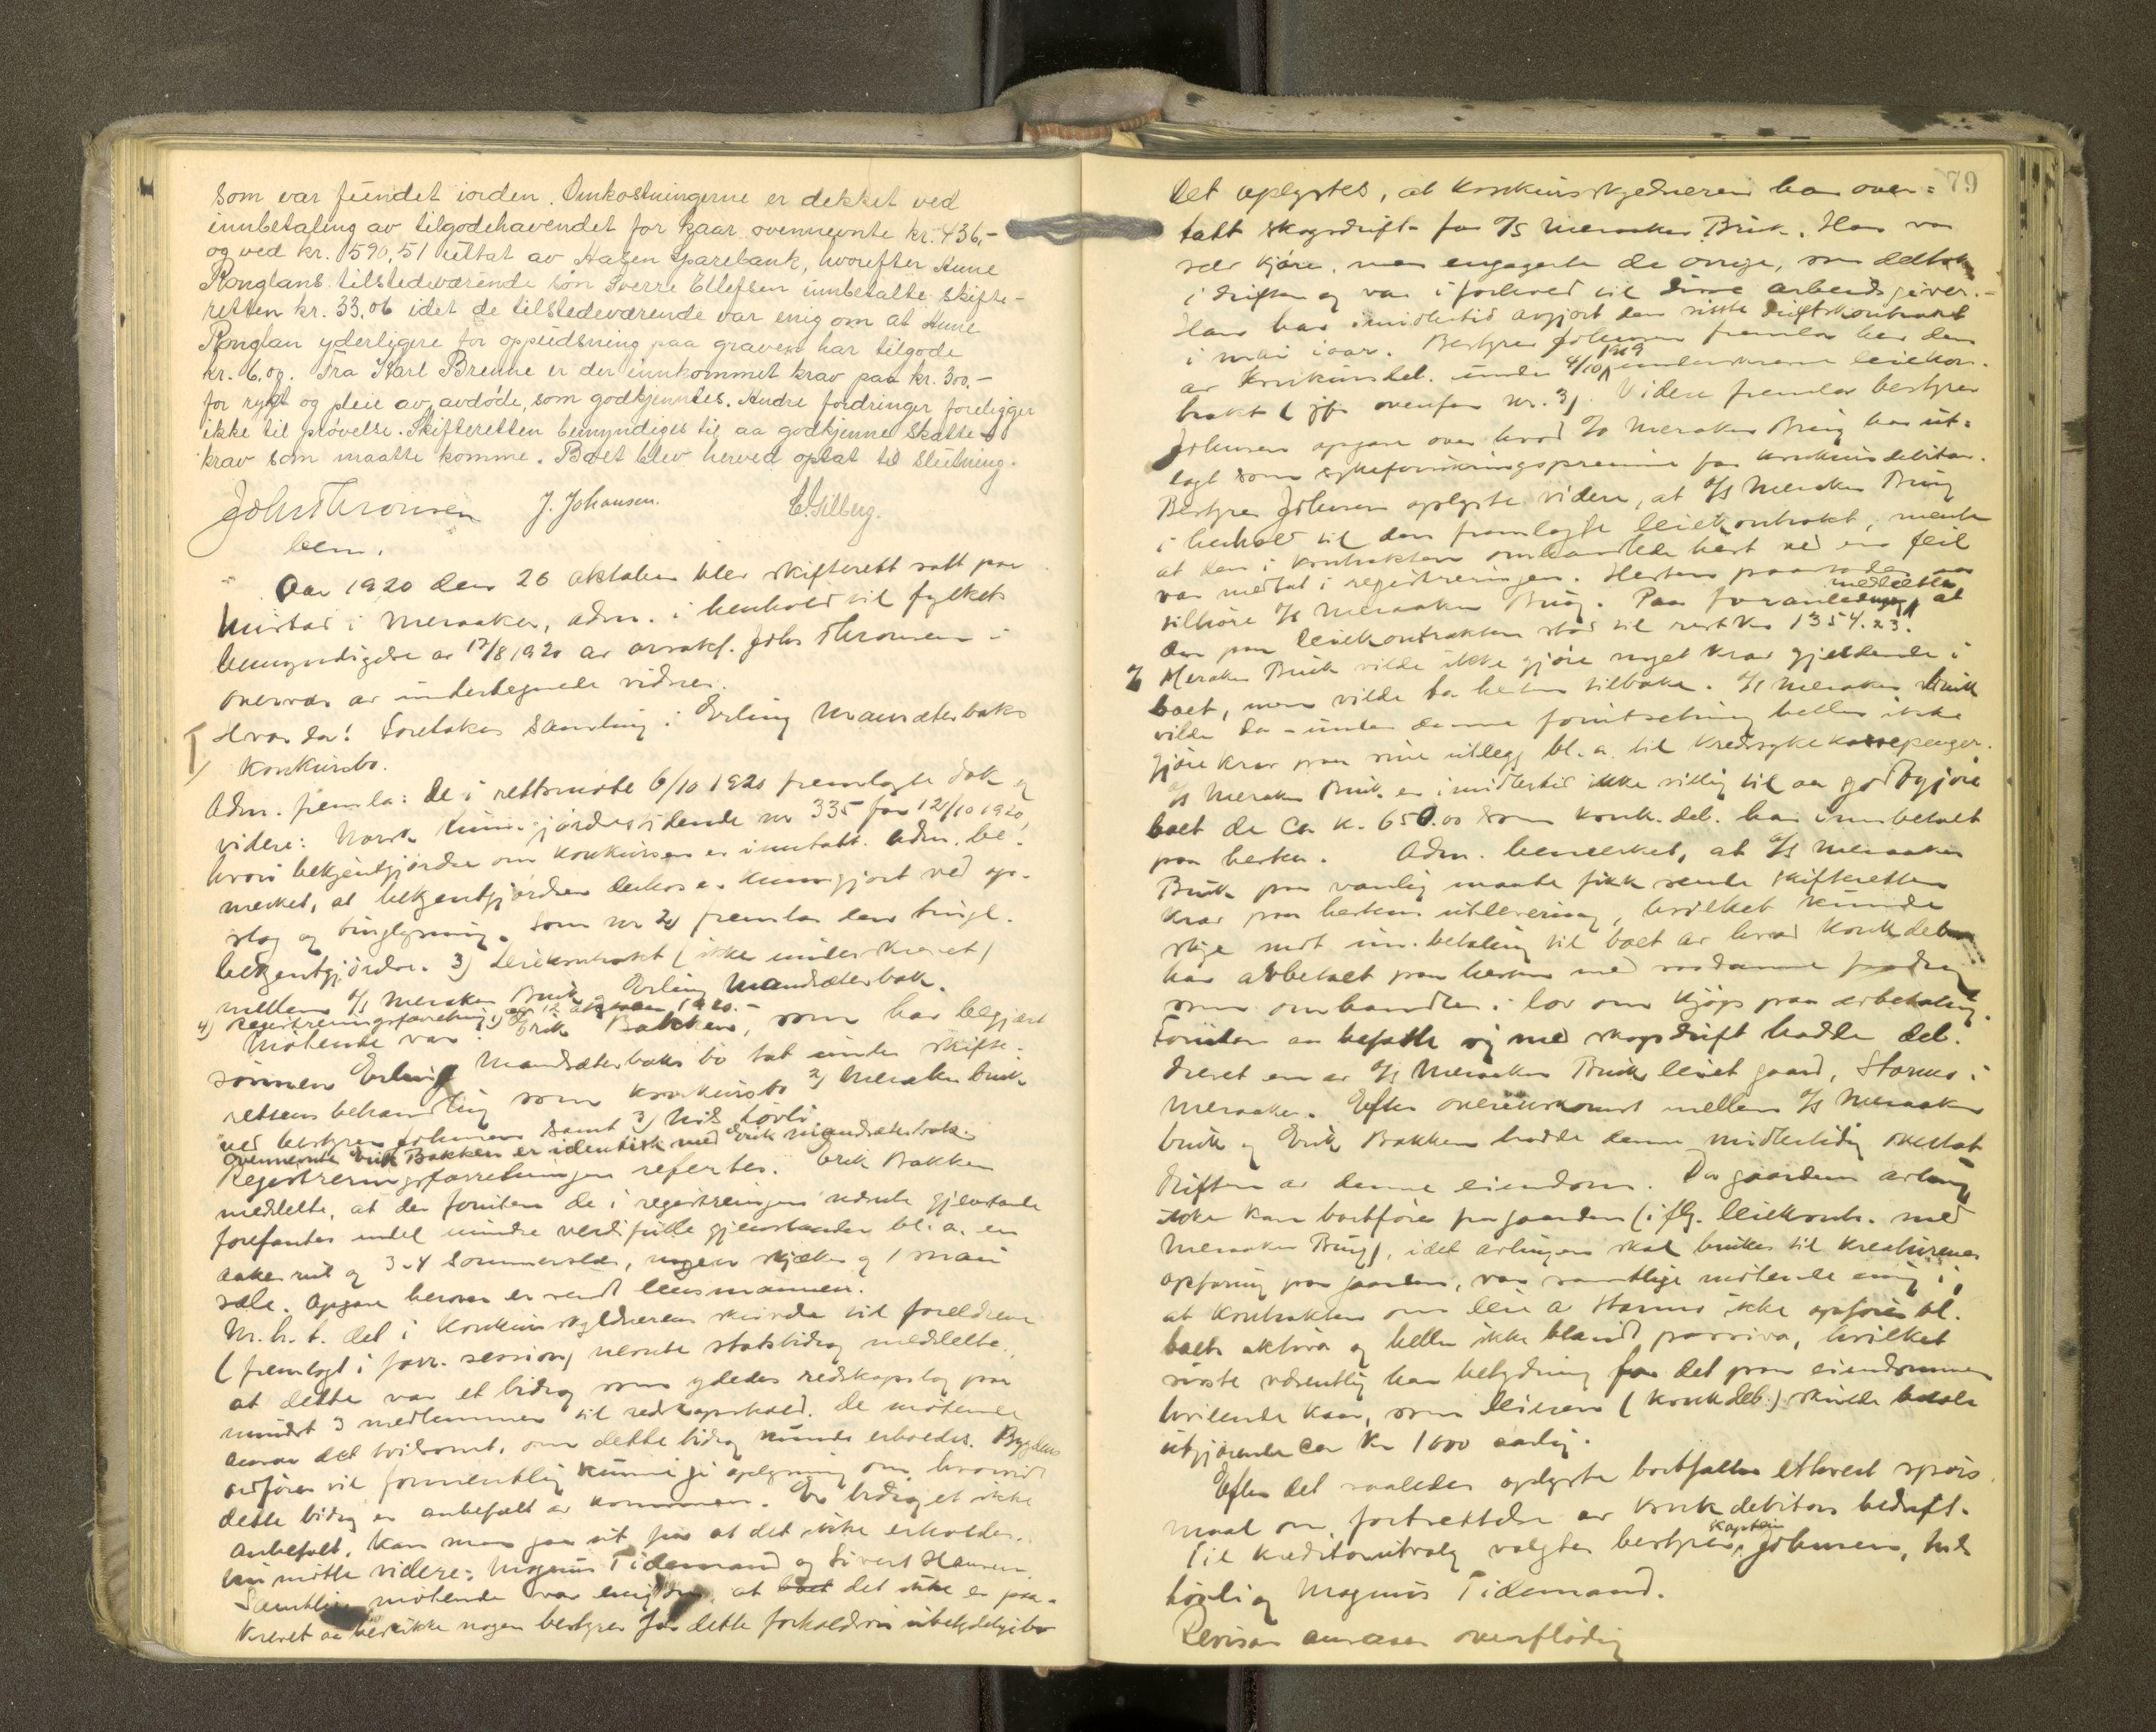 som var fundet iorden. Omkostningerne er dekket ved
innbetaling av tilgodehavendet for kaar ovennevnte kr. 436,-
og ved kr. 590,51 uttat av Hasen Sparebank, hvorefter Anne
Konglans tilstedeværende søn Sverre Ellefsen innbetalte skifte-
retten kr. 33,06 idet de tilstedeværende var enig om at Anne
Konglan yderligere for oppudsning paa graven har tilgode
kr. 6,00. Fra Karl Brenne er der innkommet krav paa kr. 300,-
for rykt og pleie av avdøde, som godkjenntes. Andre fordringer foreligger
ikke til prøvelse. Skifteretten bemyndiges til aa godkjenne skatte-
krav som maatte komme. Boet blev herved optat til slutning.
John Thronsen J. Johansen. E. Gilberg.
bem.
Aar 1920 den 26 oktober blev skifterett satt paa
i Meraker, adm. i henhold til fylkets
bemyndigelse av 17/8 1920 av orsakf. John Thronsen i
overvær av undertegnede vidner.
Hvor da! Foretokes samling i Erling Mandsæterbaks
konkursbo.
Adm. fremla: De i rettsmøte 6/10 1920 fremlagte dok og
videre: Norsk Kunngjørdestidende nr 335 for 12/10 1920,
hvori bekjentgjørelse om konkursen er inntatt. Adm. be-
merket, at bekjentgjørelsen derhos er kunngjort ved op-
slag og tinglysning. Som nr 2) fremla den tingl.
bekjentgjørelse. 3) Leiekontrakt (ikke underskrevet)
mellem A/S Meraker Bruk og Erling Mandsæterbak.
4) Registreringsforretning av 12 oktober 1920.-
Møtende var: 1) Erik Bakken, som har begjært
sønnen Erling Mandsæterbaks bo tat under skifte-
rettens behandling som konkursbo 2) Meraker Bruk
ved bestyrer Johnsen samt 3) Nils Løvli
Ovennevnte Erik Bakken er identisk med Erik Mandsæterbak.
Registreringsforretningen refertes. Erik Bakken
meddelte, at der foruten de i registreringen nevnte gjenstande
forefantes endel mindre verdifulle gjenstander bl. a. en
og 3-4 sommerslær, nogen skjæker og 1 man
sæle. Opgave herover er sendt lensmannen.
M. h. t. det i konkursskyldnerens skrivelse til foreldrene
(fremlagt i forr. session) nevnte statsbidrag meddelte,
at dette var et bidrag som ydedes redskapslag paa
minst 3 medlemmer til redskapshold. De møtende
ansaa det tvilsomt, om dette bidrag kunde erholdes. Bygdens
ordfører vil formentlig kunne gi oplysning om hvorvidt
dette bidrag er anbefalt av kommunen. Er bidraget ikke
anbefalt, kan man gaa ut fra at det ikke erholdes.
Nu møtte videre: Magnus Tidemand og Sivert Hansen.
Samtlige møtende var enig om, at det ikke er paa-
krevet aa ikke nogen bestyrer for dette forholdsvis ubetydelige bo
79
Det oplystes, at konkursskyldneren har over-
tatt skogsdrift for A/S Meraker Bruk. Han var
selv kjører, men engagerte de øvrige, som deltok
i driften og var i forhold til disse arbeidsgiver.-
Han har imidlertid avgjort den siste driftskontrakt
i mai iaar. Bestyrer Johnsen fremla her den
av konkursdeb. under 4/10 1919 underskrevne leiekon-
trakt (jfr. ovenfor nr. 3). Videre fremla bestyrer
Johnsen opgave over hvad A/S Meraker Brug har ut-
lagt som sykeforsikringspremie for konkursdebitor.
Bestyrer Johnsen oplyste videre, at A/S Meraker Brug
i henhold til den fremlagte leiekontrakt, mente
at den i kontrakten omhandlede hest ved en feil
var medtat i registreringen. Hesten paastodes aa
tilhøre A/S Meraker Brug. Paa foranledning meddeltes at
der paa leiekontrakten stod til rest kr 1354.23.
A/S Meraker Bruk vilde ikke gjøre noget krav gjeldende i
boet, men vilde ta hesten tilbake. A/S Meraker Bruk
vilde da - under denne forutsetning heller ikke
gjøre krav paa sine utlegg bl. a. til kredssykekassepenger.
A/S Meraker Bruk er imidlertid ikke villig til aa godtgjøre
boet de ca. k. 650.00 som konk. deb. har innbetalt
paa hesten. Adm. bemerket, at A/S Meraker
Bruk paa vanlig maate fikk sende skifteretten
krav paa hestens utlevering, hvilket kunde
skje mot inn.betaling til boet av hvad konk deb
har avbetalt paa hesten med saadanne fradrag
som omhandles i lov om kjøp paa avbetaling.
Foruten aa befatte sig med skogsdrift hadde deb.
drevet en av A/S Meraker Bruk leiet gaard, Stormo i
Meraker. Efter overenskomst mellem A/S Meraker
bruk og Erik Bakken hadde denne midlertidig overtat
driften av denne eiendom. Da gaardens avling
ikke kan bortføres fra gaarden (iflg. leiekontr. med
Meraker Brug), idet avlingen skal brukes til kreaturenes
opforing paa gaarden, var samtlige møtende enig i
at kontrakten om leie av Stormo ikke opføres bl.
boets aktiva og heller ikke blandt passiva, hvilket
siste vesentlig har betydning for det paa eiendommen
hvilende kaar, som leieren (konk deb.) skulde betale
utgjørende ca kr 1000 aarlig.
Efter det saaledes oplyste bortfaller ethvert spørs-
maal om fortsettelse av konk debitors bedrift.
Til kreditorutvalg valgtes bestyrer, kaptein Johnsen, Nils
Løvli og Magnus Tidemand.
Revisor ansaaes overflødig